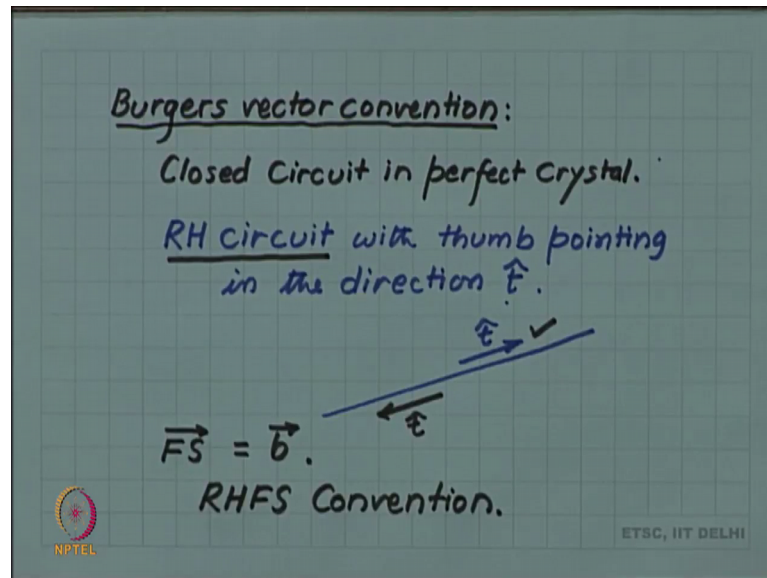 Burgers vector convention:
Closed Circuit in perfect Crystal.
RH circuit with thumb pointing
in the direction t̂.
t̂ ✓
t̂
F⃗S⃗ = b⃗.
RHFS Convention.
NPTEL
ETSC, IIT DELHI